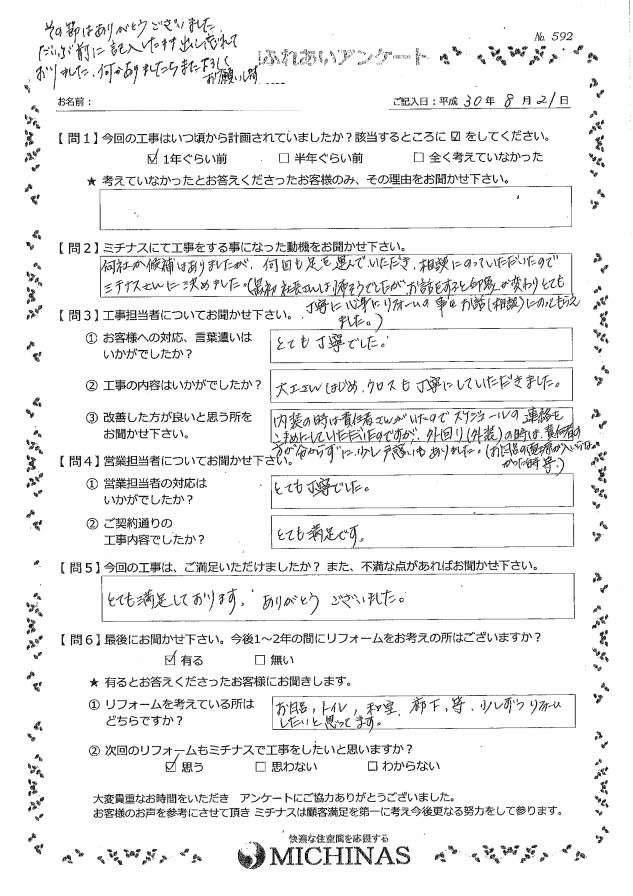 その節はありがとうございました
だいぶ前に記入したまま出しそびれて
おりました。何かありましたらまた宜しく
お願いします
No. 592
ふれあいアンケート
お名前：
ご記入日：平成 30年 8月 21日
【問1】今回の工事はいつ頃から計画されていましたか？該当するところに ☑ をしてください。
☑ 1年ぐらい前 □ 半年ぐらい前 □ 全く考えていなかった
★ 考えていなかったとお答えくださったお客様のみ、その理由をお聞かせ下さい。
【問2】ミチナスにて工事をする事になった動機をお聞かせ下さい。
何社か候補はありましたが、何回も足を運んでいただき、相談にのっていただいたので
ミチナスさんに決めました。(最初社長さんは怖そうでしたがお話をすると印象が変わりとても
丁寧に心準にリフォームの事をお話(相談)にのってもらえ
ました。)
【問3】工事担当者についてお聞かせ下さい。
① お客様への対応、言葉遣いは
いかがでしたか？
とても丁寧でした。
② 工事の内容はいかがでしたか？
大工さんはじめ、クロスも丁寧にしていただきました。
③ 改善した方が良いと思う所を
お聞かせ下さい。
内装の時は責任者さんがいたのでスケジュールの連絡を
こまめにしていただいたのですが、外回り(外装)の時は、責任者の
方が分からずに少し戸惑いもありました。(お風呂の電源が入いらな
かった時等。)
【問4】営業担当者についてお聞かせ下さい。
① 営業担当者の対応は
いかがでしたか？
とても丁寧でした。
② ご契約通りの
工事内容でしたか？
とても満足です。
【問5】今回の工事は、ご満足いただけましたか？ また、不満な点があればお聞かせ下さい。
とても満足しております。ありがとうございました。
【問6】最後にお聞かせ下さい。今後1～2年の間にリフォームをお考えの所はございますか？
☑ 有る □ 無い
★ 有るとお答えくださったお客様にお聞きします。
① リフォームを考えている所は
どちらですか？
お風呂、トイレ、和室、廊下、等、少しずつリフォーム
したいと思ってます。
② 次回のリフォームもミチナスで工事をしたいと思いますか？
☑ 思う □ 思わない □ わからない
大変貴重なお時間をいただき アンケートにご協力ありがとうございました。
お客様のお声を参考にさせて頂き ミチナスは顧客満足を第一に考え今後更なる努力をして参ります。
快適な住空間を応援する
MICHINAS